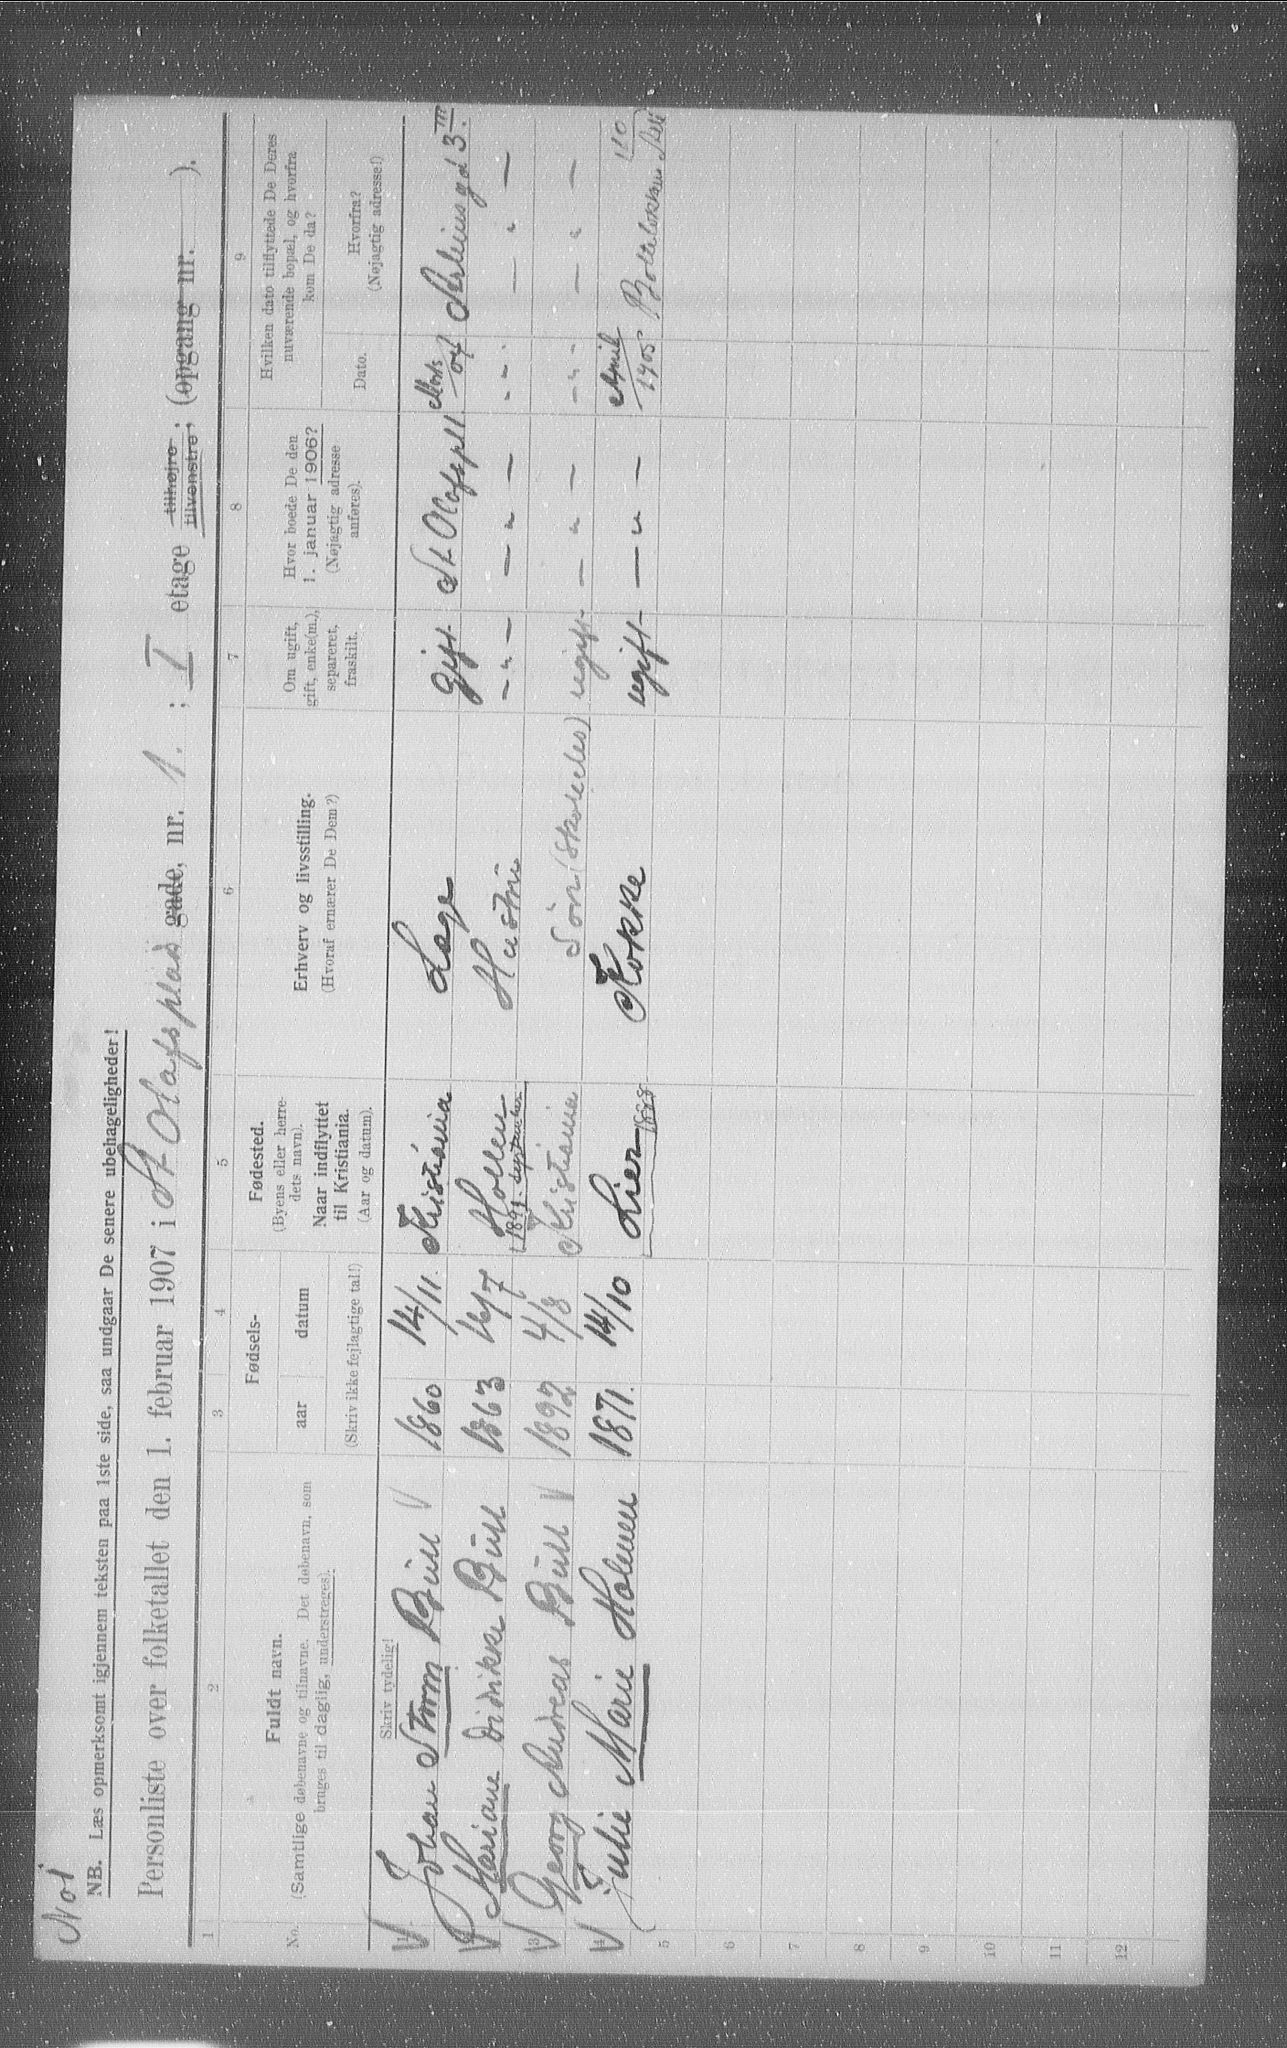 No 1
NB. Læs opmerksomt igjennem teksten paa 1ste side, saa undgaar De senere ubehageligheder!
Personliste over folketallet den 1. februar 1907 i St Olafs plads gade, nr. 1. ; I etage tilhøjre tilvenstre; (opgang nr. ).
1 2 3 4 5 6 7 8 9
No.
Fuldt navn.
(Samtlige døbenavne og tilnavne. Det døbenavn, som
bruges til daglig, understreges).
Fødsels-
aar datum
Fødested.
(Byens eller herre-
dets navn).
Naar indflyttet
til Kristiania.
(Aar og datum).
Erhverv og livsstilling.
(Hvoraf ernærer De Dem?)
Om ugift,
gift, enke(m.),
separeret,
fraskilt.
Hvor boede De den
1. januar 1906?
(Nøjagtig adresse
anføres).
Hvilken dato tilflyttede De Deres
nuværende bopæl, og hvorfra
kom De da?
Dato.
Hvorfra?
(Nøjagtig adresse!)
Skriv tydelig!
(Skriv ikke fejlagtige tal!)
V 1 Johan Storm Bull V 1860 14/11. Kristiania Læge gift St Olafspl 1 04 3 III
V 2 Mariane Didrikke Bull 1863 16/7 Hollen Hustru — " — — " — - " - — " —
1891. september
V 3 Georg Andreas Bull V 1892 4/8 Kristiania Søn (Skoleelev) ugift — " — - " - — " —
V 4 Julie Marie Holmen 1871. 14/10 Lier Kokke ugift — " — April 1905
1888
5
6
7
8
9
10
11
12